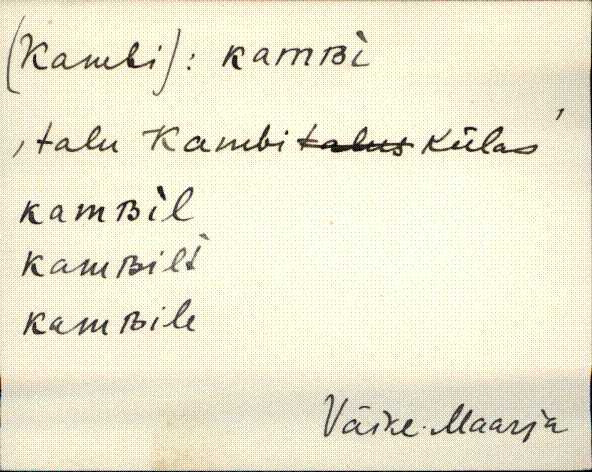 (Kambi): kamʙì
, talu Kambi talus külas '
kamʙìl
kamʙilt
kamʙile
Väike-Maarja